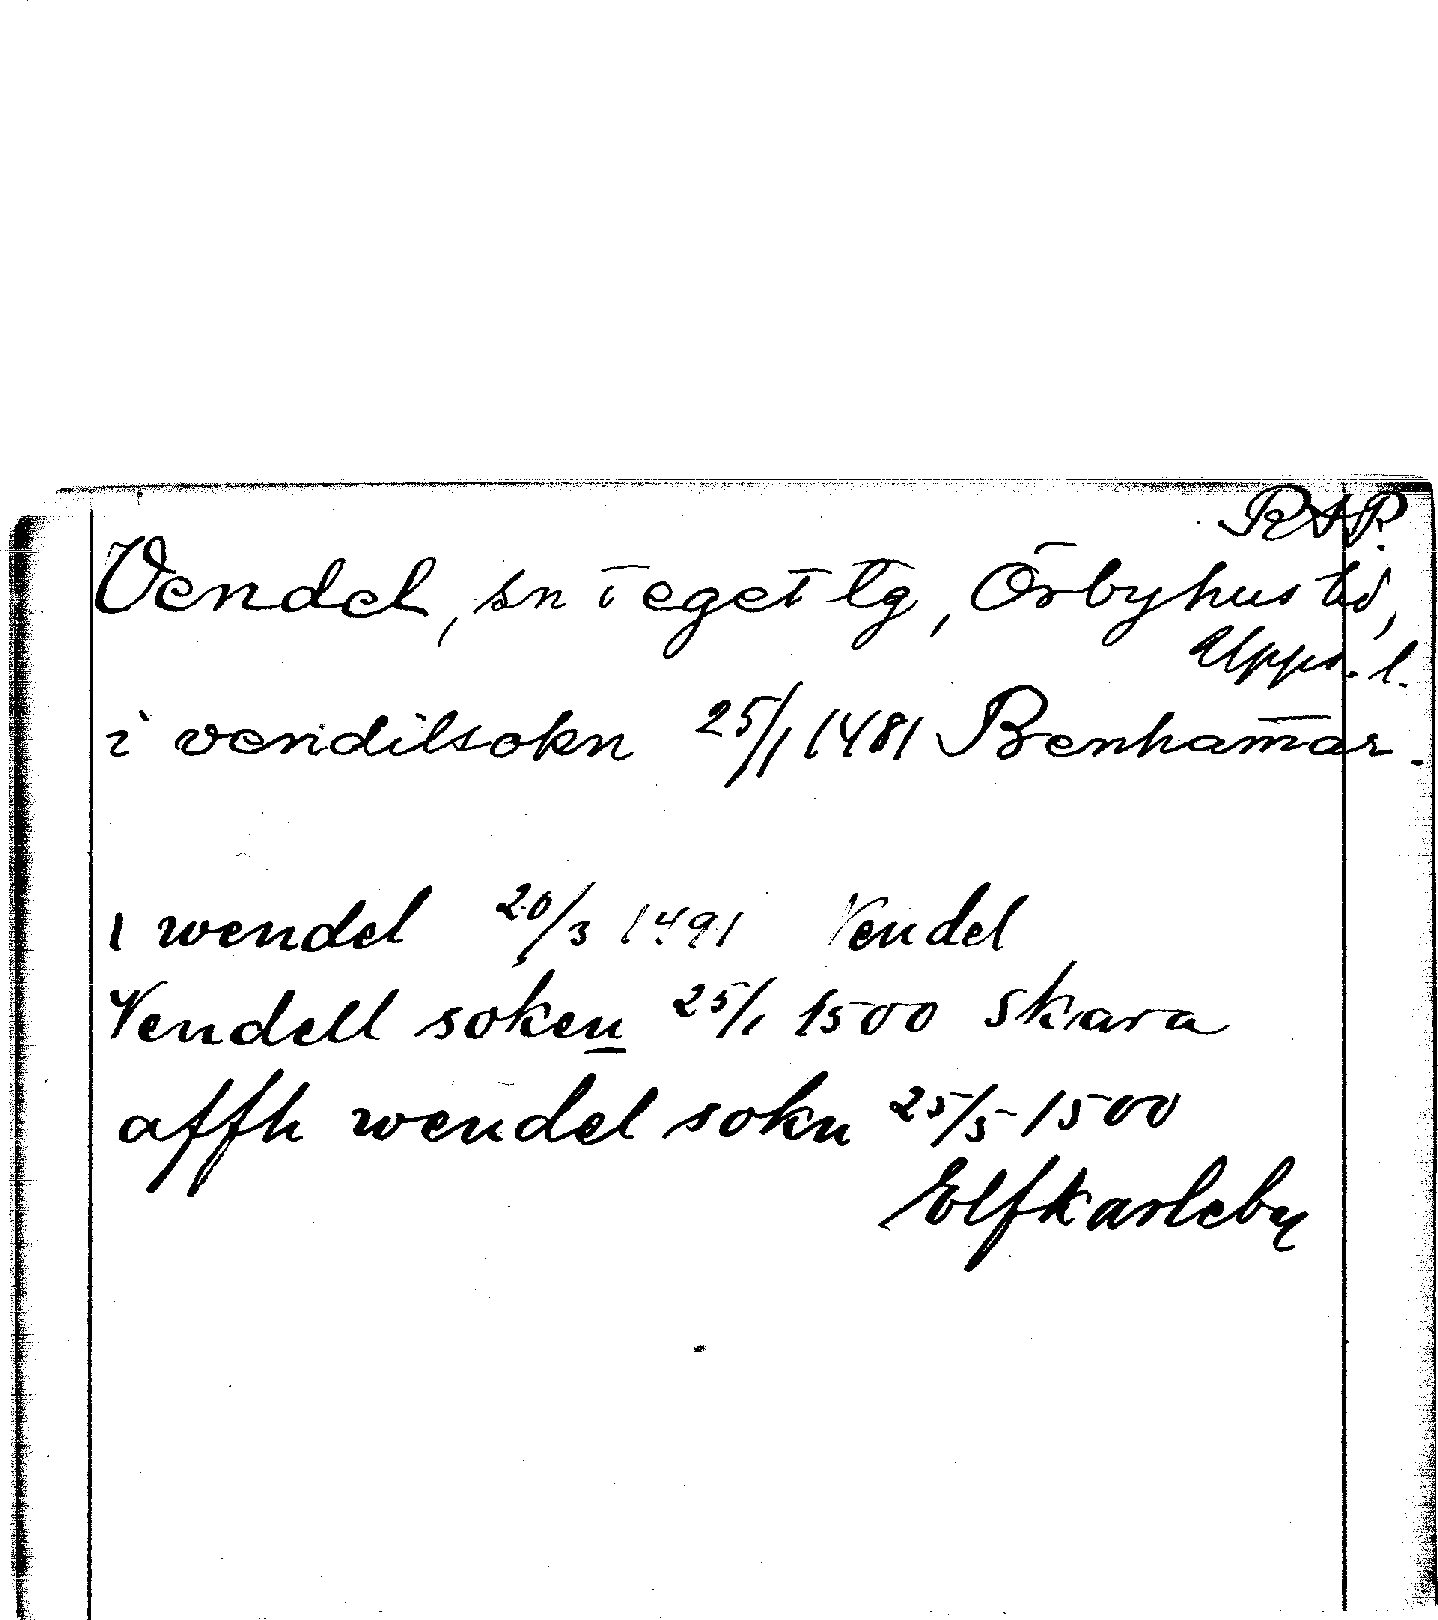 RAP.
Vendel, sn i eget tg, Örbyhus hd,
Upps. l.
i vendilsokn 25/1 1481 Benhamar.
I wendel 20/3 1491 Vendel
Vendell soken 25/1 1500 Skara
affh wendel sokn 25/5 1500
Elfkarleby